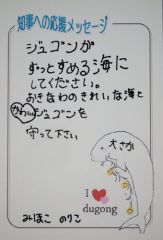 知事への応援メッセージ
ジュゴンが
ずっとすめる海に
してください。
おきなわのきれいな海と
かわいいジュゴンを
守って下さい
大さか
I ❤ dugong
みほこ のりこ